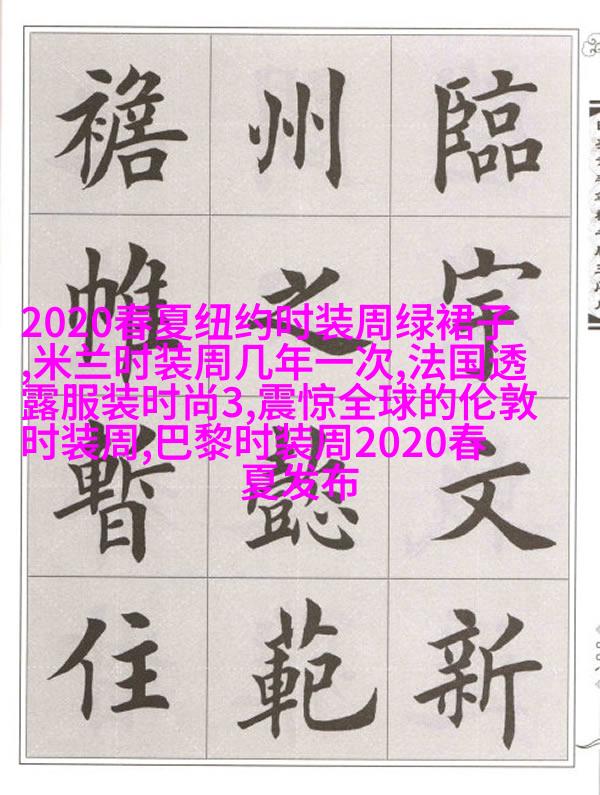 臨宇文新
州之懿範
襜帷暫住
2020春夏纽约时装周绿裙子
,米兰时装周几年一次,法国透
露服装时尚3,震惊全球的伦敦
时装周,巴黎时装周2020春
夏发布